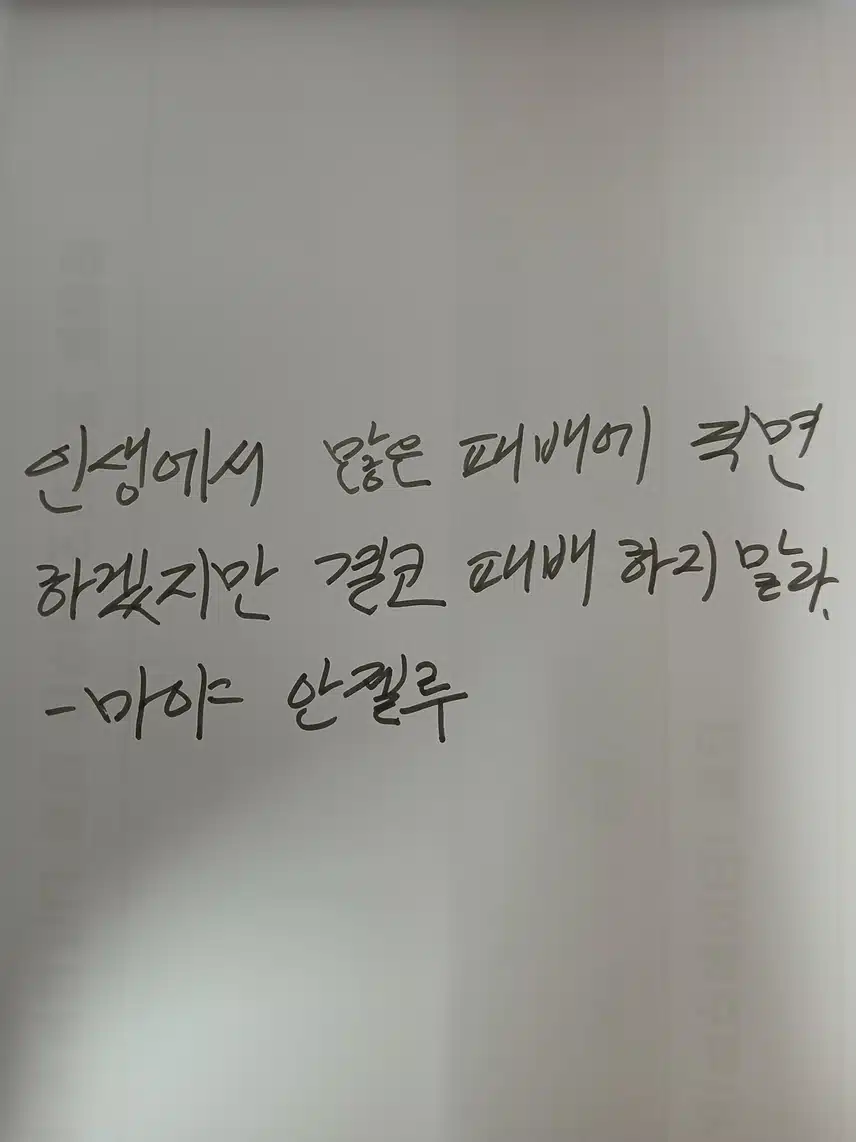 인생에서 많은 패배에 직면
하겠지만 결코 패배 하지 말라.
- 마야 안젤루